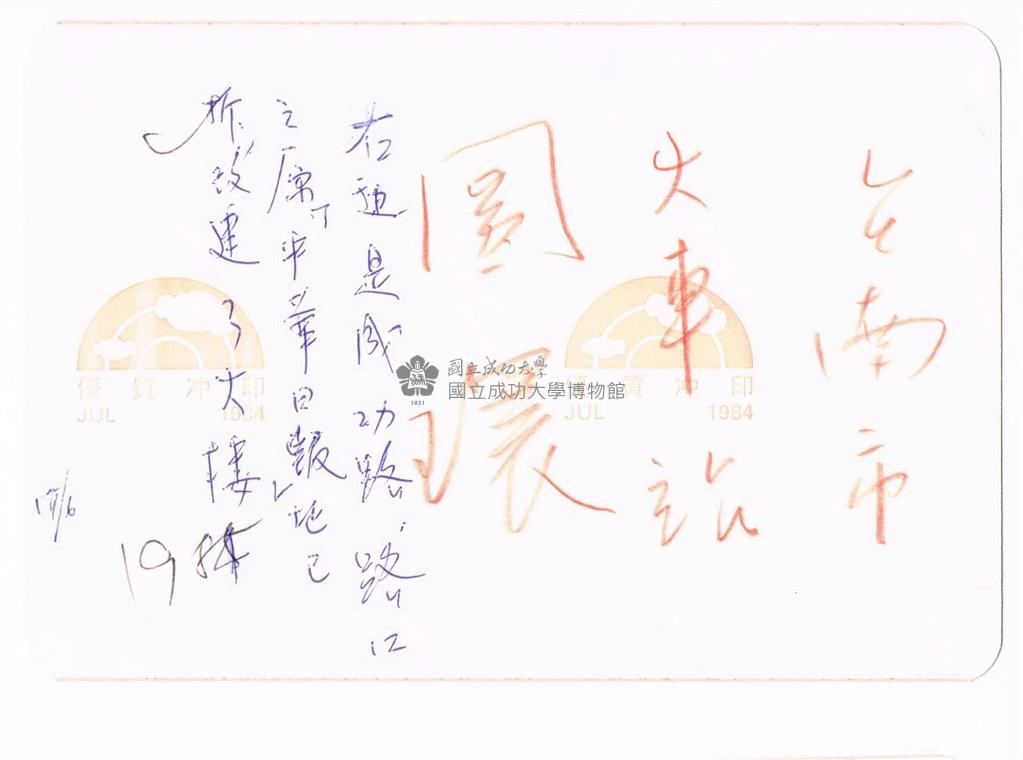 台南市
火車站
圓環
右邊是成功路、路口
之原「中華日報」地已
拆改建了大樓
19
17/6
優質冲印
JUL 1984
優質冲印
JUL 1984
國立成功大學
國立成功大學博物館
1931